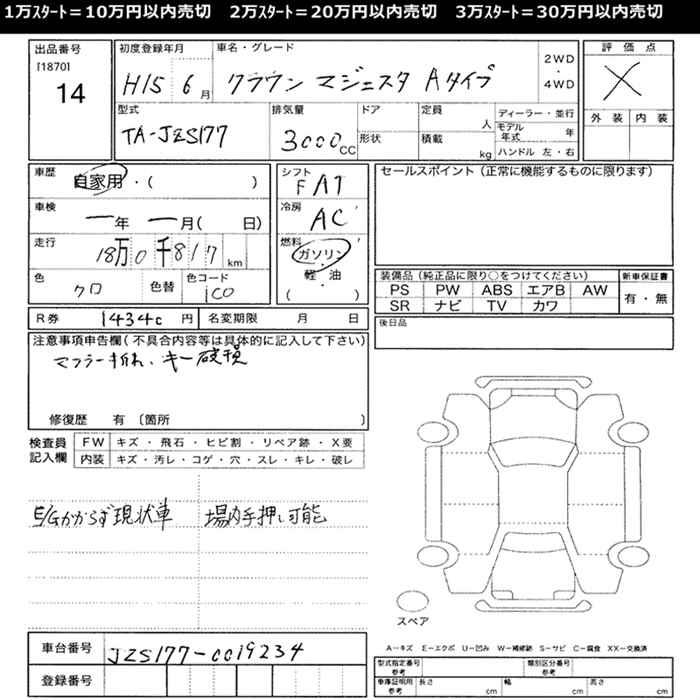 1万ｽﾀｰﾄ＝10万円以内売切　2万ｽﾀｰﾄ＝20万円以内売切　3万ｽﾀｰﾄ＝30万円以内売切
出品番号　初度登録年月　車名・グレード　評価点
[1870]
14　H15 6月　クラウン マジェスタ Aタイプ　2WD・4WD　X
型式　排気量　ドア　定員　ディーラー・並行　外装　内装
TA-JZS177　3000CC　形状　人　積載　kg　モデル年式　年
ハンドル 左・右
車歴　自家用・(　)　シフト　FAT　セールスポイント（正常に機能するものに限ります）
車検　一年 一月(　日)　冷房　AC
走行　18万0千817km　燃料　ガソリン・軽油
(　)
色　クロ　色替　色コード　装備品（純正品に限り○をつけてください）　新車保証書
PS　PW　ABS　エアB　AW　有・無
SR　ナビ　TV　カワ
R券　円　名変期限　月　日　後日品
注意事項申告欄(不具合内容等は具体的に記入して下さい)
マフラー折れ、キー破損
修復歴　有〔箇所　〕
検査員記入欄　FW　キズ・飛石・ヒビ割・リペア跡・X要
内装　キズ・汚レ・コゲ・穴・スレ・キレ・破レ
E/Gかからず現状車　場内手押し可能
スペア
車台番号　JZS177-0019234
登録番号
A－キズ　E－エクボ　U－凹み　W－補修跡　S－サビ　C－腐食　XX－交換済
型式指定番号 参考　類別区分番号 参考
車庫証明用 参考　長さ　cm　幅　cm　高さ　cm